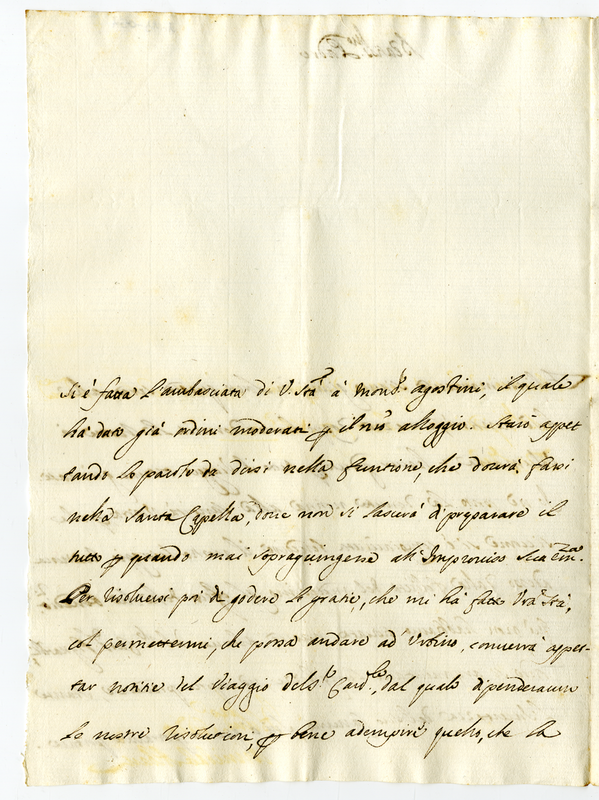 Si è fatta l'ambasciata di V. Stà à Mons.r agostini, il quale
hà dato già ordini moderati p il nrō alloggio. Starò aspet
tando le parole da dirsi nella funtione, che dourà farsi
nella Santa Cappella, doue non si lascierà di preparare il
tutto p quando mai sopragiungesse all'Improuiso Sua Em.za
Per risoluersi poi di godere le gratie, che mi hà fatto Vrā Stà,
col permettermi, che possa andare ad' Urbino, conuerrà aspet-
tar notitie del Viaggio del S.r Card.le, dal quale dipenderanno
le nostre risolutioni, p bene adempire quello, che la